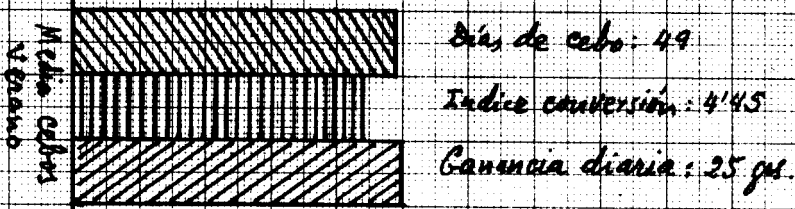 Media cebos
Verano
Días de cebo: 49
Indice conversión: 4'45
Ganancia diaria: 25 grs.